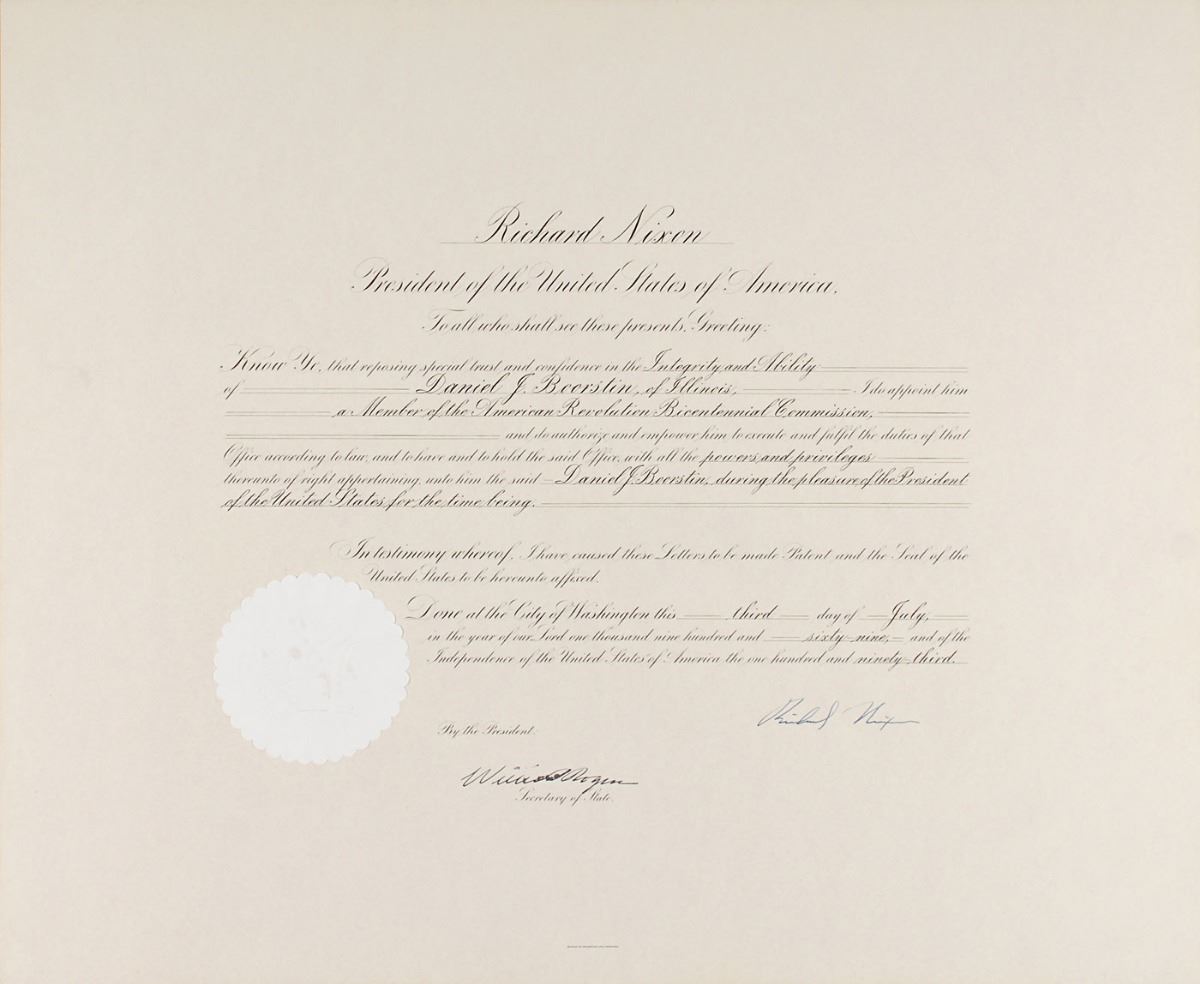 Richard Nixon
President of the United States of America.
To all who shall see these presents, Greeting:
Know Ye, that reposing special trust and confidence in the Integrity and Ability
of Daniel J. Boorstin, of Illinois, I do appoint him
a Member of the American Revolution Bicentennial Commission,
and do authorize and empower him to execute and fulfil the duties of that
Office according to law, and to have and to hold the said Office, with all the powers and privileges
thereunto of right appertaining, unto him the said Daniel J. Boorstin, during the pleasure of the President
of the United States, for the time being.
In testimony whereof, I have caused these Letters to be made Patent and the Seal of the
United States to be hereunto affixed.
Done at the City of Washington this third day of July,
in the year of our Lord one thousand nine hundred and sixty-nine, and of the
Independence of the United States of America the one hundred and ninety-third.
Richard Nixon
By the President:
William P Rogers
Secretary of State.